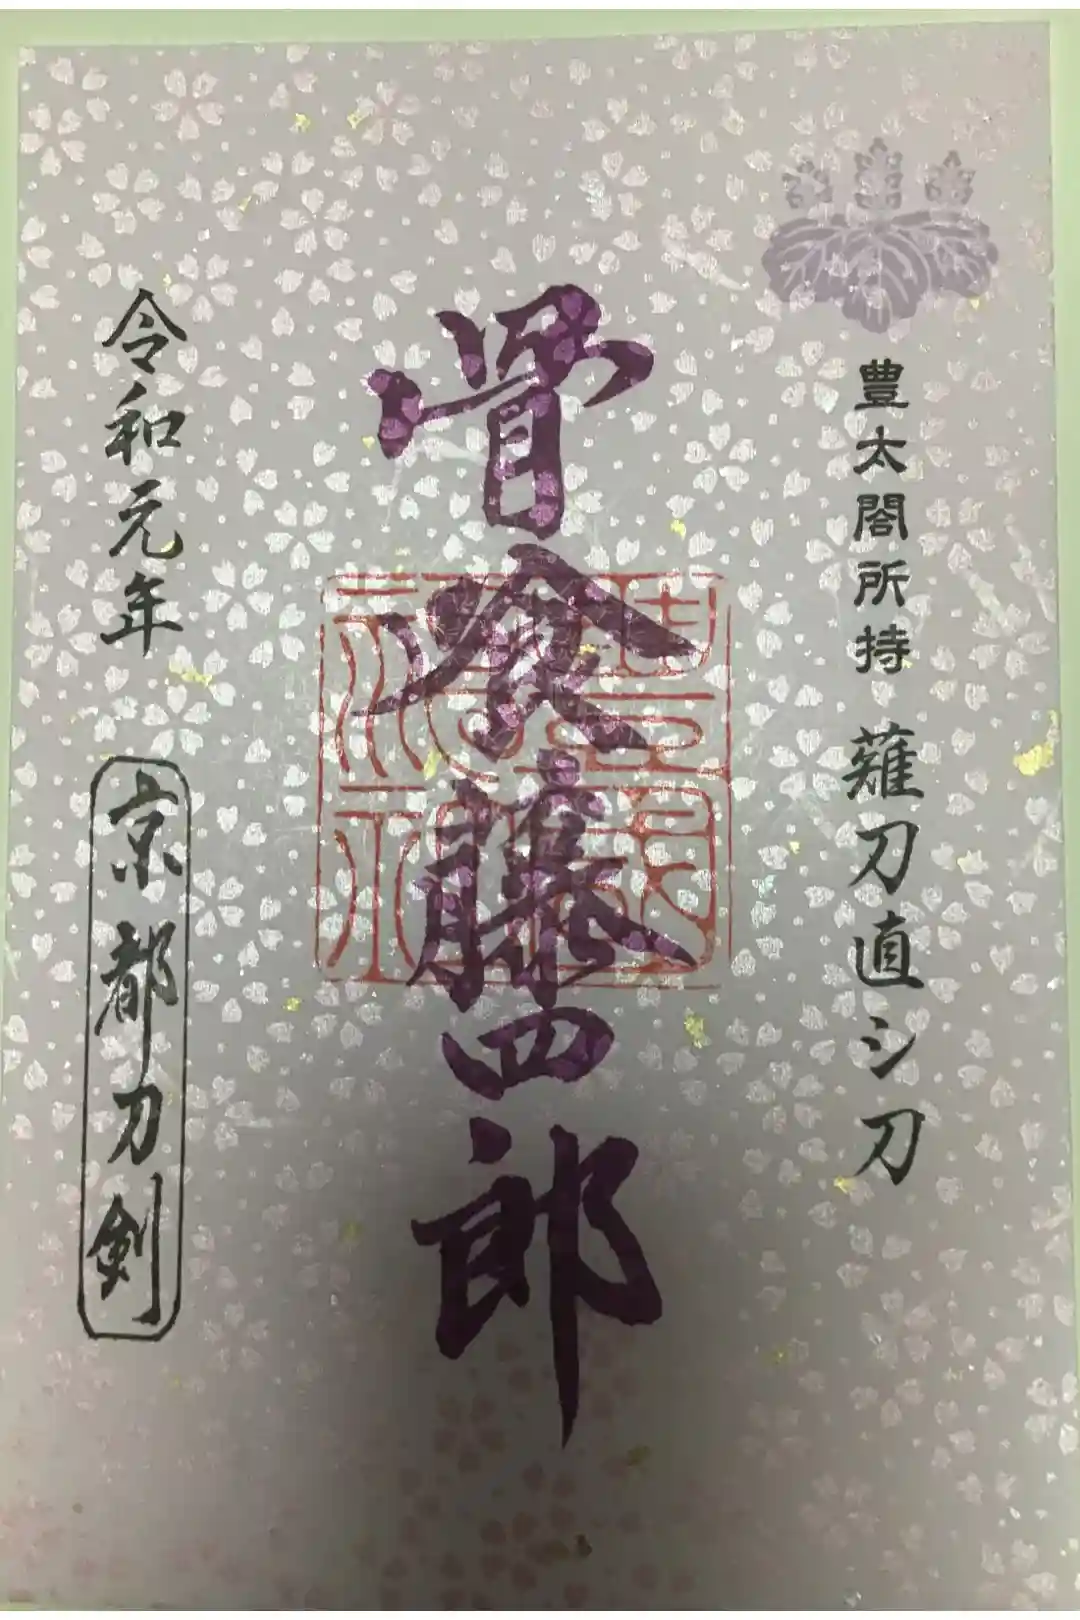 豊太閤所持 薙刀直シ刀
骨喰藤四郎
令和元年
京都刀剣